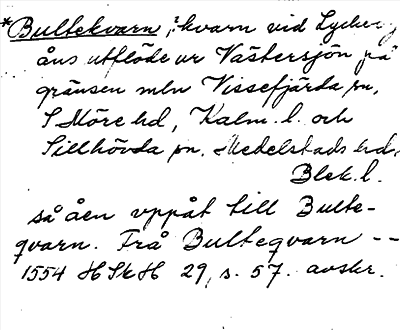 *Bultekvarn, ? kvarn vid Lycke
åns utflöde ur Västersjön på
gränsen mln Vissefjärda sn,
S Möre hd, Kalm. l. och
Sillhövda sn. Medelstads hd,
Blek. l.
så åen vppåt till Bulte-
qvarn. Frå Bulteqvarn --
1554 HSkH 29, s. 57. avskr.